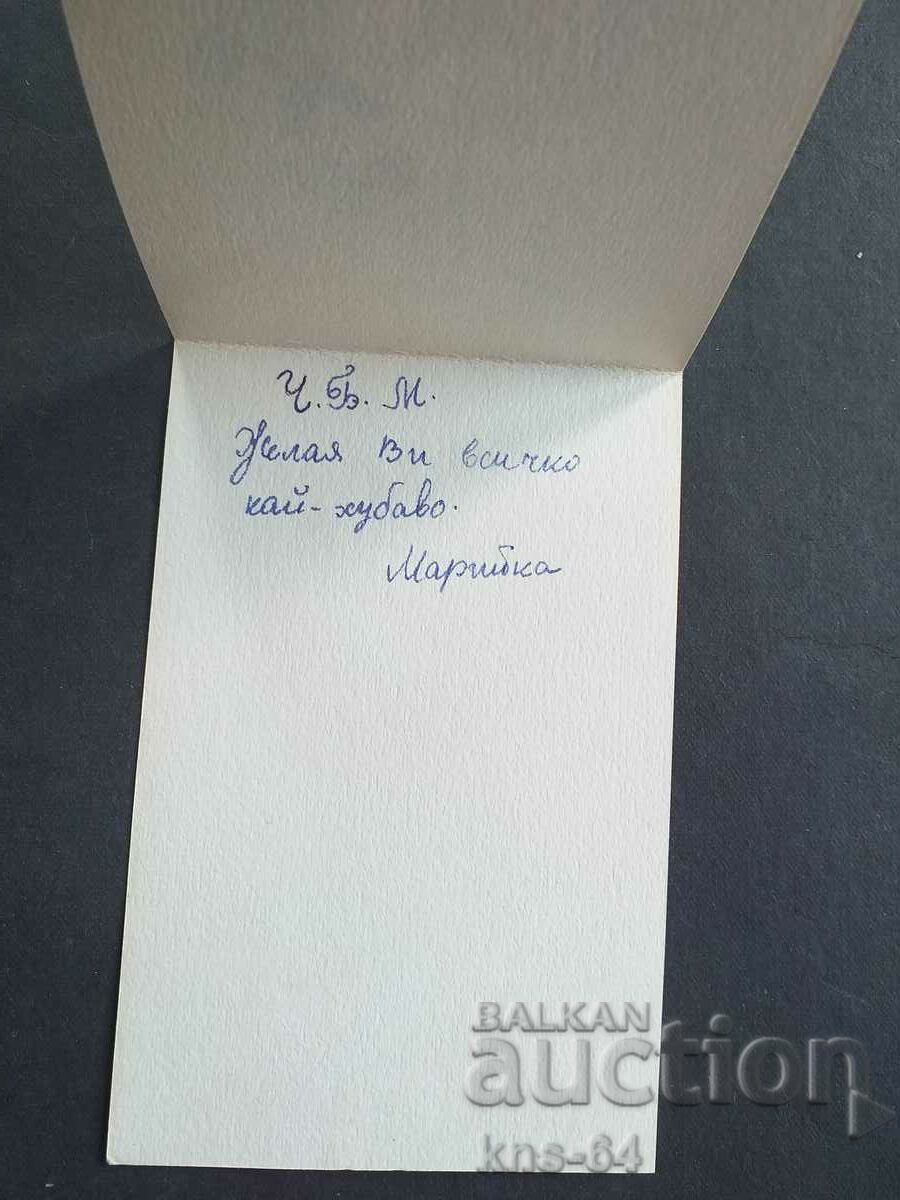 Ч.Б.М.
Желая Ви всичко
най-хубаво.
Марийка
BALKAN
auction
kns-64